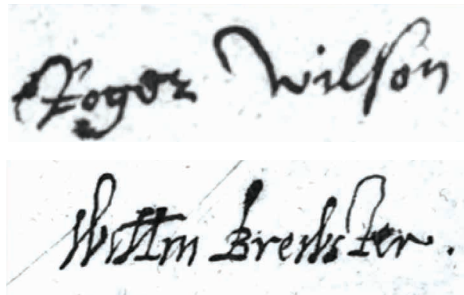 Roger Wilson
Willm Brewster.